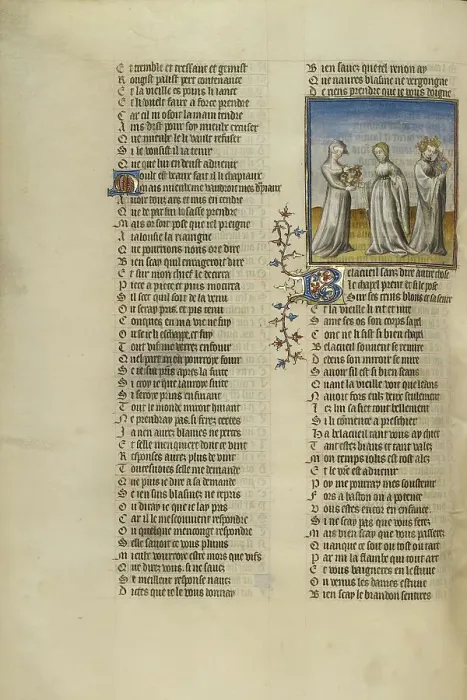 E t tremble et tressaut et gemist
R ougist palist pert contenance
E t la vieille es poins li lance
E t li vuelt faire a force prendre
C ar il ni osoit la main tendre
A ins dist pour soy mieulx excuser
Q ue mieulx le li vault refuser
S i le voulsist il ia tenir
Q ue que lui en deust aduenir
M oult est beaux fait il li chapiaux
mais mieulx me vauldroit mes drapiaux
A uoir tous ars et mis en cendre
Q ue de par lui losasse prendre
M ais or soit pose que ie le preigne
A ialousie la riaingne
Q ue pourrions nous ore dire
B ien scay quil enragerоit dire
E t sur mon chief le
P iece a piece et puis mourra
S il scet quil soit de la venu
O u seray pris et pis tenu
C onques en ma vie ne fuy
O u se ie li eschape et fuy
Q uel part men pourroye fouir
T out vif me verrez enfouir
S e ie sui pris apres la fuite
S i croy ie que iauroye suite
S i seroye prins en fuiant
T out le monde miroit huiant
N e prendray pas si ferez certes
J a nen aurez blasmes ne pertes
E t selle menquiert dont ce vint
R esponses aurez plus de vint
T outesuoies selle me demande
Q ue puis ie dire a sa demande
S e ien sui blasmez ne repris
O u diray ie que ie lay pris
C ar il le mesconuient respondre
O u quelque menconge respondre
S elle sauoit ce vous pleuis
M ieulx vouroye estre mors que vifs
Q ue direz vous si ne sauez
S e meilleur response nauez
D ictes que ie le vous donnay
B ien sauez que tel renon ay
Q ue naurez blasme ne vergongne
D e riens prendre que ie vous doigne
B elacueil sans dire autre chose
le chapel prent et si le pose
Sur ses crins blons et sasseur
E t la vieille li rit et iure
S ame ses os son corps sa pel
C onc ne li fist si bien chapel
B elacueil souuent se remire
D edens son miroir se mire
S auoir sil est si bien seans
Q uant la vieille voit que leans
N auoit fors eulx deux seulement
L ez lui sassiet tout bellement
S i li commence a preschier
H a belacueil tant vous ay chier
T ant estes biaux et tant valez
M on temps iolis est tost alez
E t le vostre est aduenir
P oy me pourray mes soustenir
F ors a baston ou a potence
V ous estes encor en enfance
S i ne scay pas que vous ferez
M ais bien scay que vous passerez
Q uanque ce soit ou tost ou tart
P ar mi la flambe qui tout art
E t vous baignerez en lestuue
O u venus les dames estuue
B ien scay le brandon sentirez